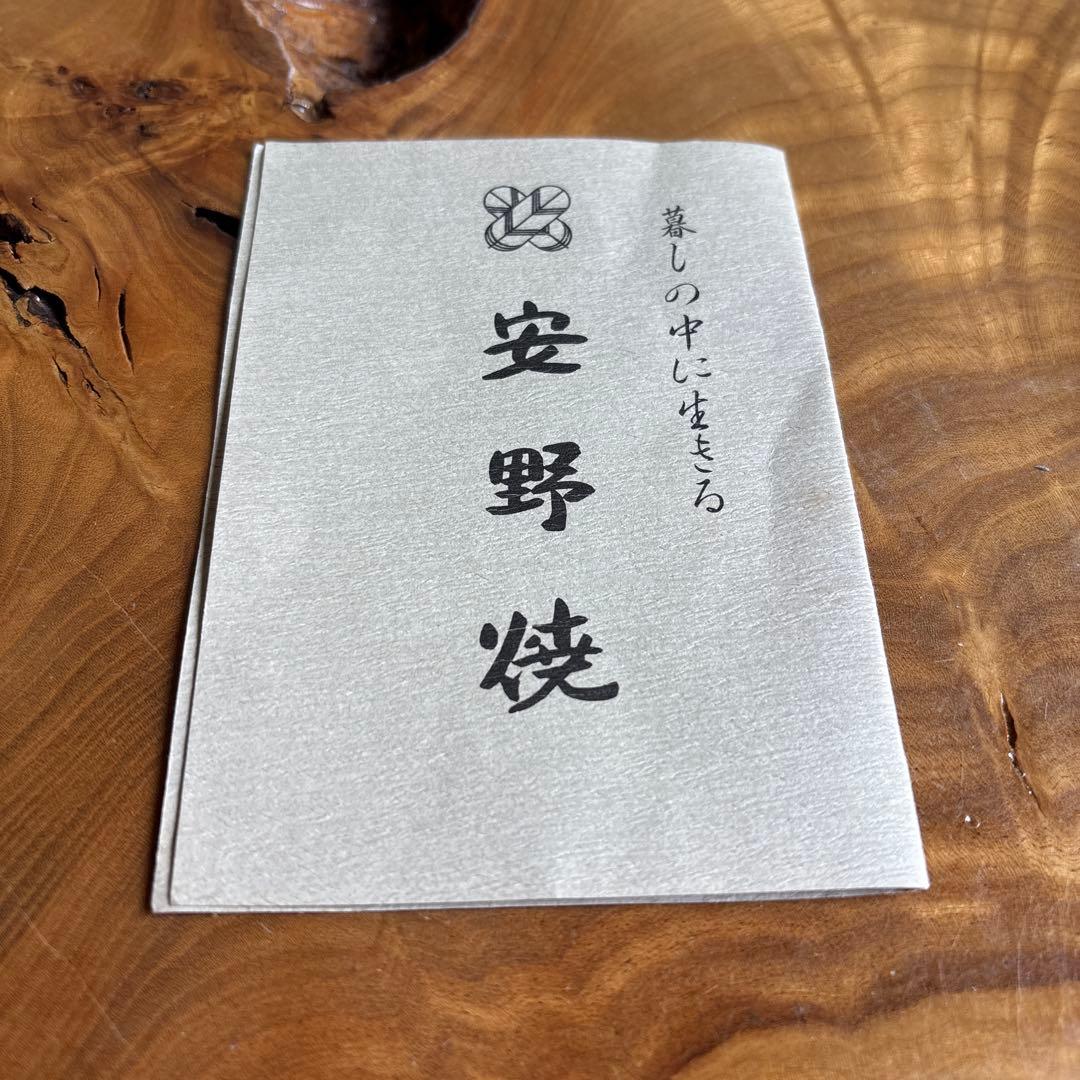 暮しの中に生きる
安野焼